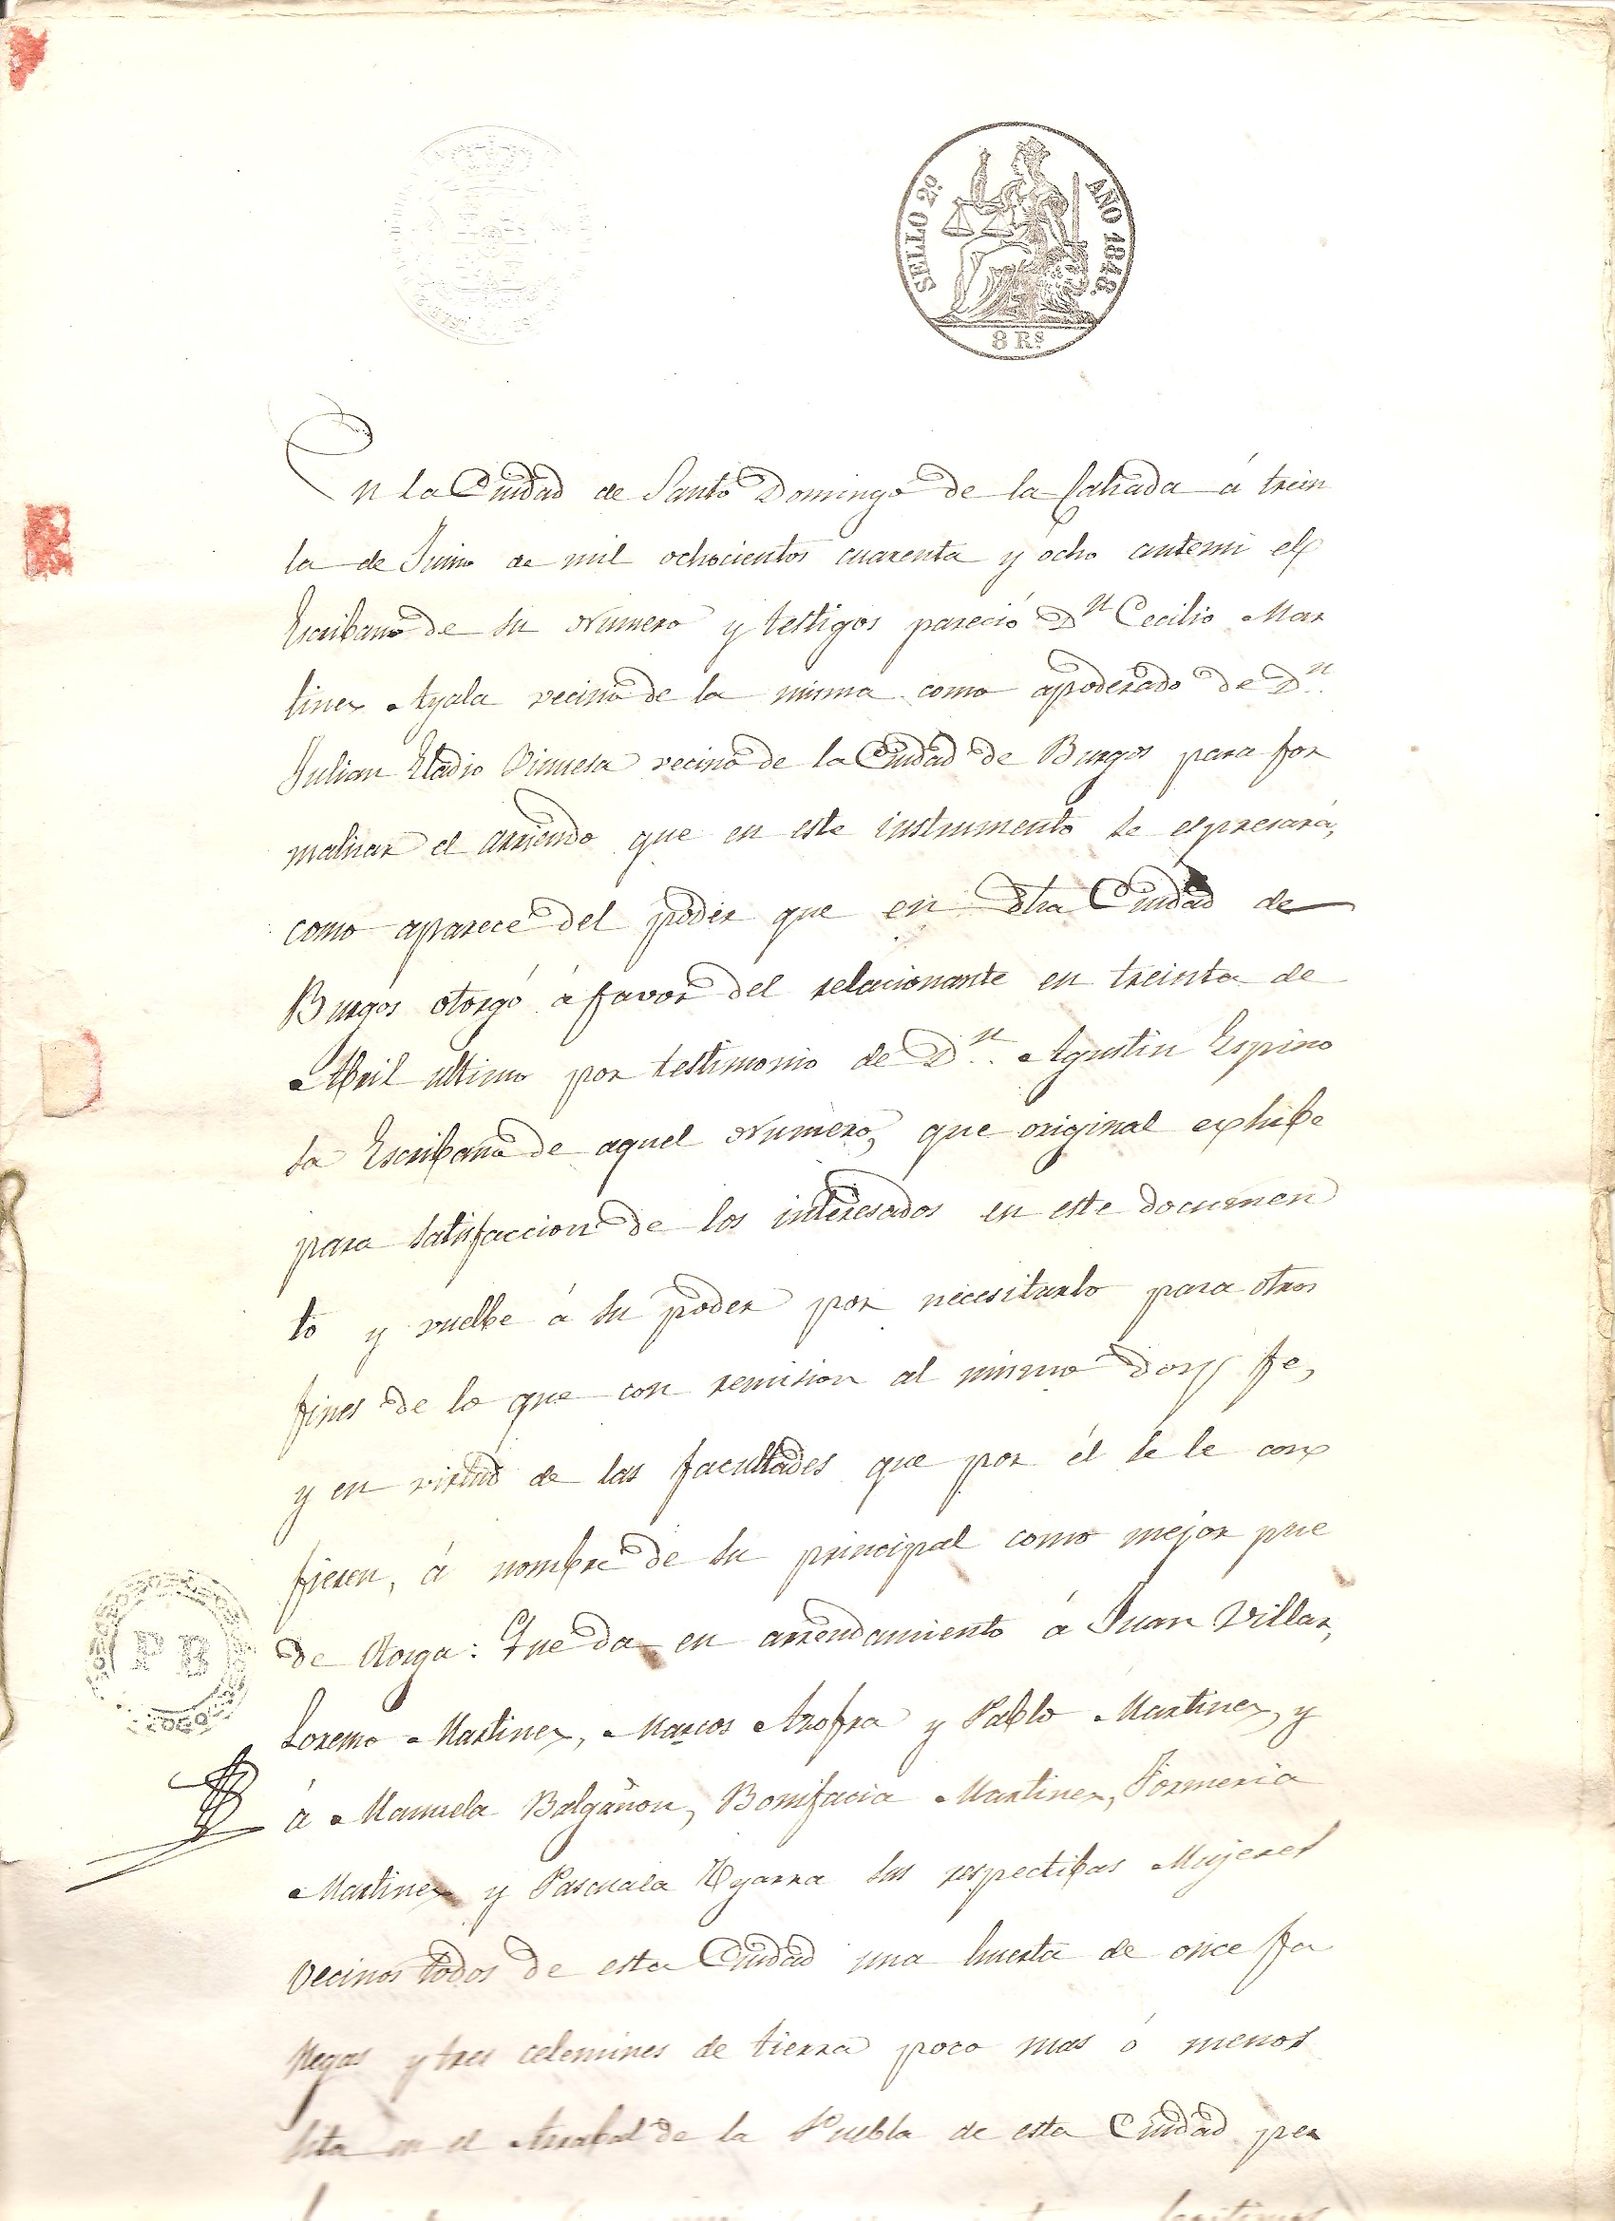 SELLO 2º.
AÑO 1848.
8 Rs
En la Ciudad de Santo Domingo de la Calzada á trein
ta de Junio de mil ochocientos cuarenta y ocho antemi el
Escribano de su Numero y testigos pareció Dn Cecilio Mar
tinez Ayala vecino de la misma como apoderado de Dn.
Julian Eladio Vinuesa vecino de la Ciudad de Burgos para for
malizar el arriendo que en este instrumento se espresará,
como aparece del poder que en dha Ciudad de
Burgos otorgó á favor del relacionante en treinta de
Abril ultimo por testimonio de Dn. Agustin Espino
sa Escribano de aquel Numero, que original exhibe
para satisfaccion de los interesados en este documen
to y vuelbe á su poder por necesitarlo para otros
fines de lo que con remision al mismo doy fe,
y en virtud de las facultades que por él se le con
fieren, á nombre de su principal como mejor pue
de Otorga: Que da en arrendamiento á Juan Villar,
Lorenzo Martinez, Marcos Azofra y Pablo Martinez, y
á Manuela Balgañon, Bonifacia Martinez, Formeria
Martinez y Pascuala Yzarra sus respectibas Mujeres
Vecinos todos de esta Ciudad una huerta de once fa
negas y tres celemines de tierra poco mas ó menos
sita en el Arrabal de la Puebla de esta Ciudad per
legitimos
PB